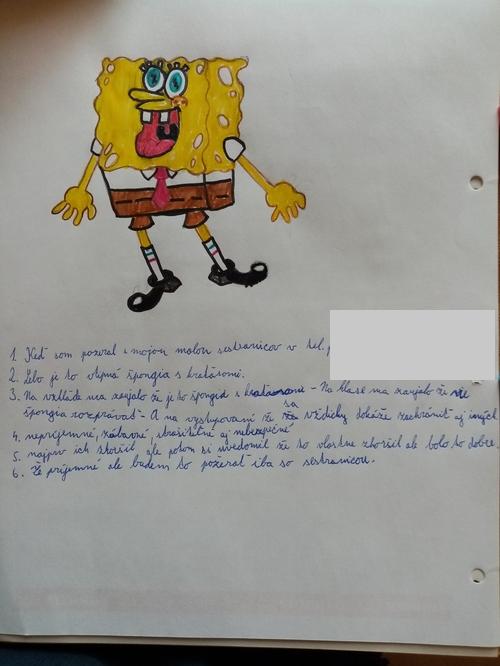 1. Keď som pozeral s mojou malou sesternicou v tel.
2. Lebo je to vtipná špongia s kraťasami.
3. Na vzhľade ma zaujalo že je to špongia s kraťasami - Na hlase ma zaujalo že vie
špongia rozprávať - A na vystupovaní že sa vždicky dokáže zachrániť aj iných
4. nepríjemné, zábavné, strašiteľné aj nebezpečné
5. najprv ich skoršil, ale potom si uvedomil že to vlastne zhoršil ale bolo to dobre.
6. Že príjemné ale budem to pozerať iba so sestranicou.